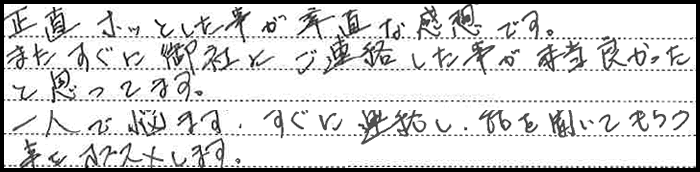 正直ホッとした事が率直な感想です。
またすぐに御社にご連絡した事が本当良かった
と思ってます。
一人で悩まず、すぐに連絡し、話を聞いてもらう
事をオススメします。